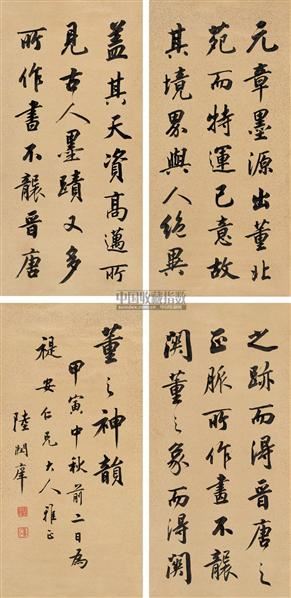 元章墨源出董北
苑而特運己意故
其境界與人絕異
蓋其天資高邁所
見古人墨蹟又多
所作書不襲晉唐
之跡而得晉唐之
正脈所作畫不襲
關董之象而得關
董之神韻
甲寅中秋前二日為
禔安仁兄大人雅正
陸潤庠
中国收藏指数